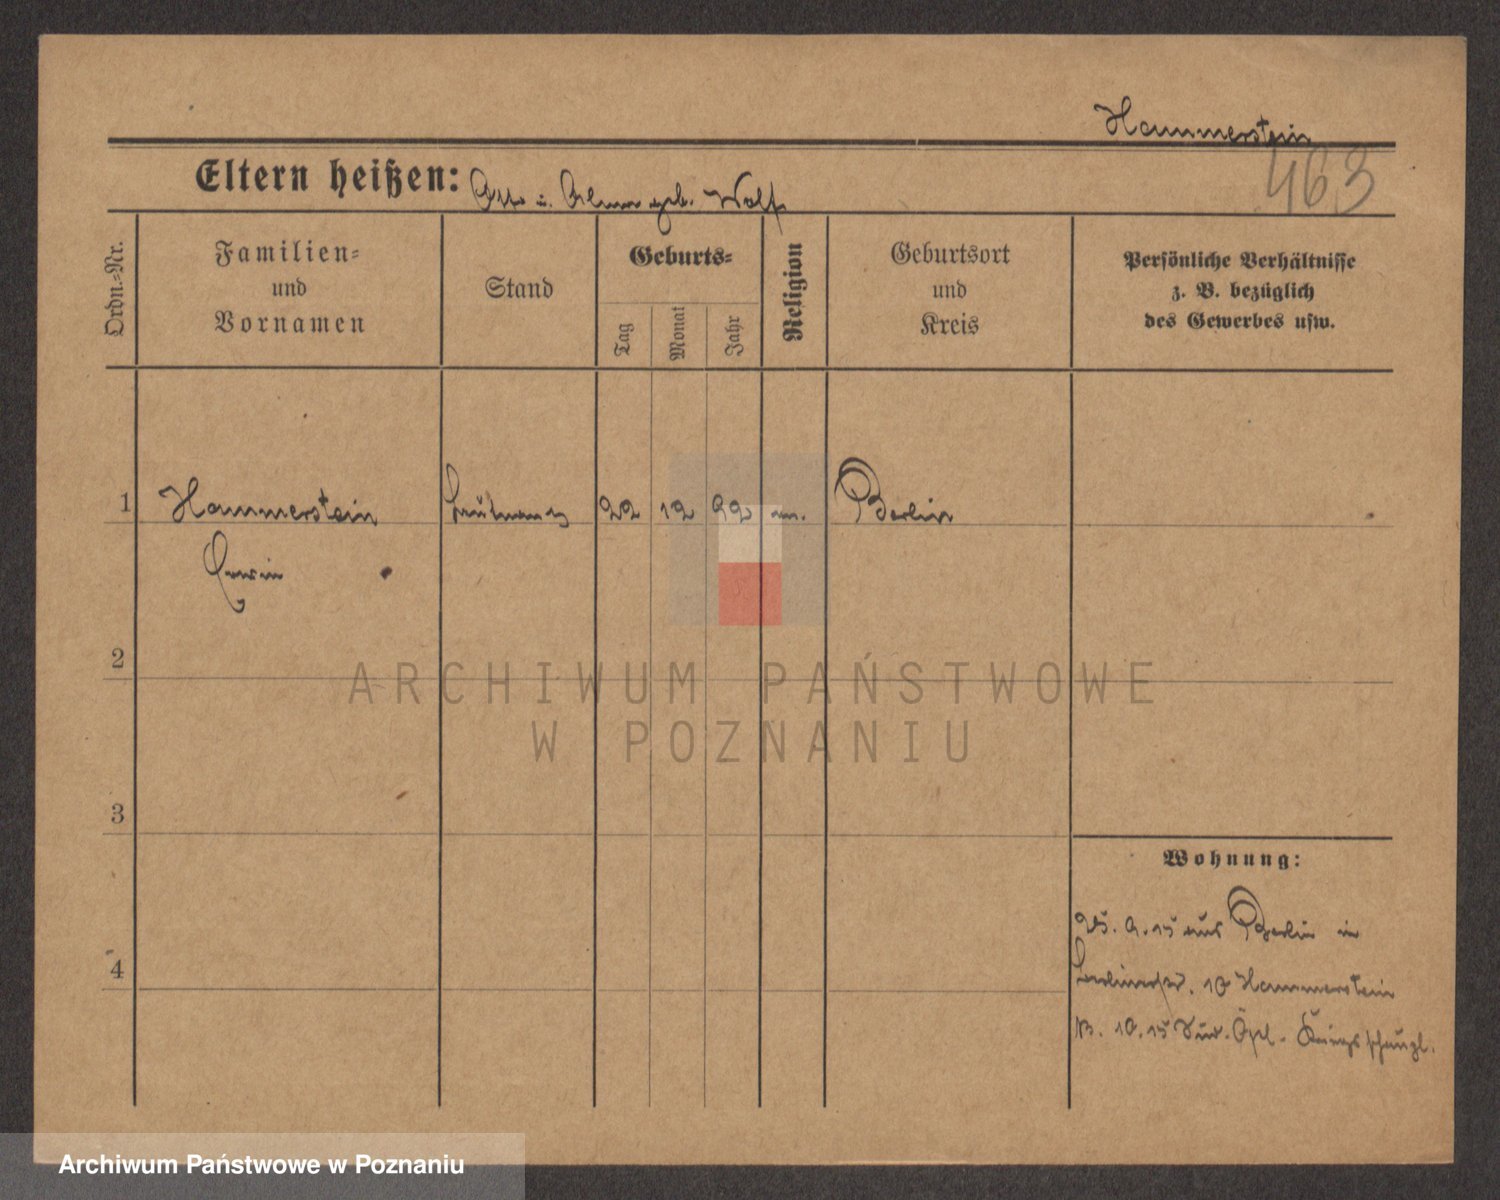 Hammerstein
463
Eltern heißen: Otto u. geb. Wolff
Ordn.=Nr.
Familien=
und
Vornamen
Stand
Geburts=
Tag
Monat
Jahr
Religion
Geburtsort
und
Kreis
Persönliche Verhältnisse
z. B. bezüglich
des Gewerbes usw.
1 Hammerstein 22 12 92 Berlin
Erwin
2
ARCHIWUM PAŃSTWOWE
W POZNANIU
3
Wohnung:
25. 9. 15 aus Berlin in
Berlinerstr. 10 Hammerstein
4
10. 15
Archiwum Państwowe w Poznaniu